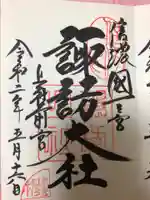 信濃國一之宮
諏訪大社
上社前宮
令和二年五月六日